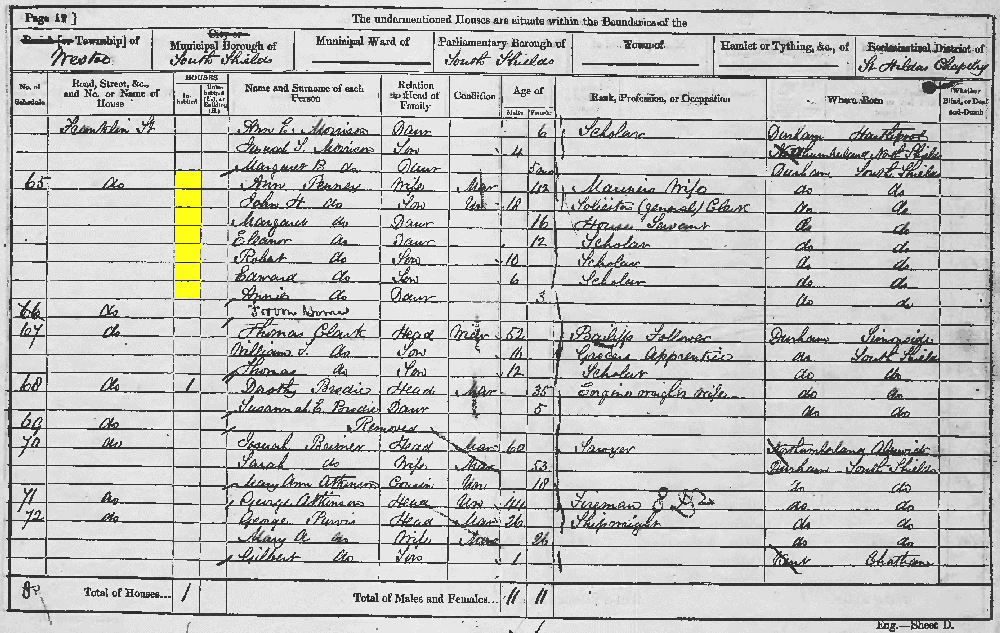 Page 12 ] The undermentioned Houses are situate within the Boundaries of the
Parish [or Township] of
Westoe
City or
Municipal Borough of
South Shields
Municipal Ward of
Parliamentary Borough of
South Shields
Town of
Hamlet or Tything, &c., of
Ecclesiastical District of
St Hildas Chapelry
No. of Schedule
Road, Street, &c., and No. or Name of House
HOUSES
Inhabited
Uninhabited (U.), or Building (B.)
Name and Surname of each Person
Relation to Head of Family
Condition
Age of
Males Females
Rank, Profession, or Occupation
Where Born
Whether Blind, or Deaf-and-Dumb
Franklin St Ann E. Morrison Daur 6 Scholar Durham Hartlepool
Morrison Son 4 Northumberland North Shields
Margaret B. do Daur 5 mo Durham South Shields
65 do Ann Penney Wife Mar 42 Mariners Wife do do
John H. do Son Un 18 Solicitor (general) Clerk do do
Margaret do Daur 16 House Servant do do
Eleanor do Daur 12 Scholar do do
Robert do Son 10 Scholar do do
Edward do Son 6 Scholar do do
Annie do Daur 3 do do
66 do
67 do Thomas Clark Head Widr 52 Bailiffs Follower Durham
William do Son 16 Grocers Apprentice do South Shields
Thomas do Son 12 Scholar do do
68 do 1 Doroty Brodie Head Mar 35 Enginewrights wife do do
Susannah E. Brodie Daur 5 do do
69 do Removed
70 do Head Mar 60 Sawyer Northumberland Alnwick
Sarah do Wife Mar 53 Durham South Shields
Mary Ann Atkinson Cousin Un 18 do do
71 do George Atkinson Head Un 44 Fireman do do
72 do George Purvis Head Mar 26 Shipwright do do
Mary A. do Wife Mar 26 do do
Gilbert do Son 1 Kent Chatham
8 Total of Houses... 1 Total of Males and Females... 11 11
Eng.—Sheet D.